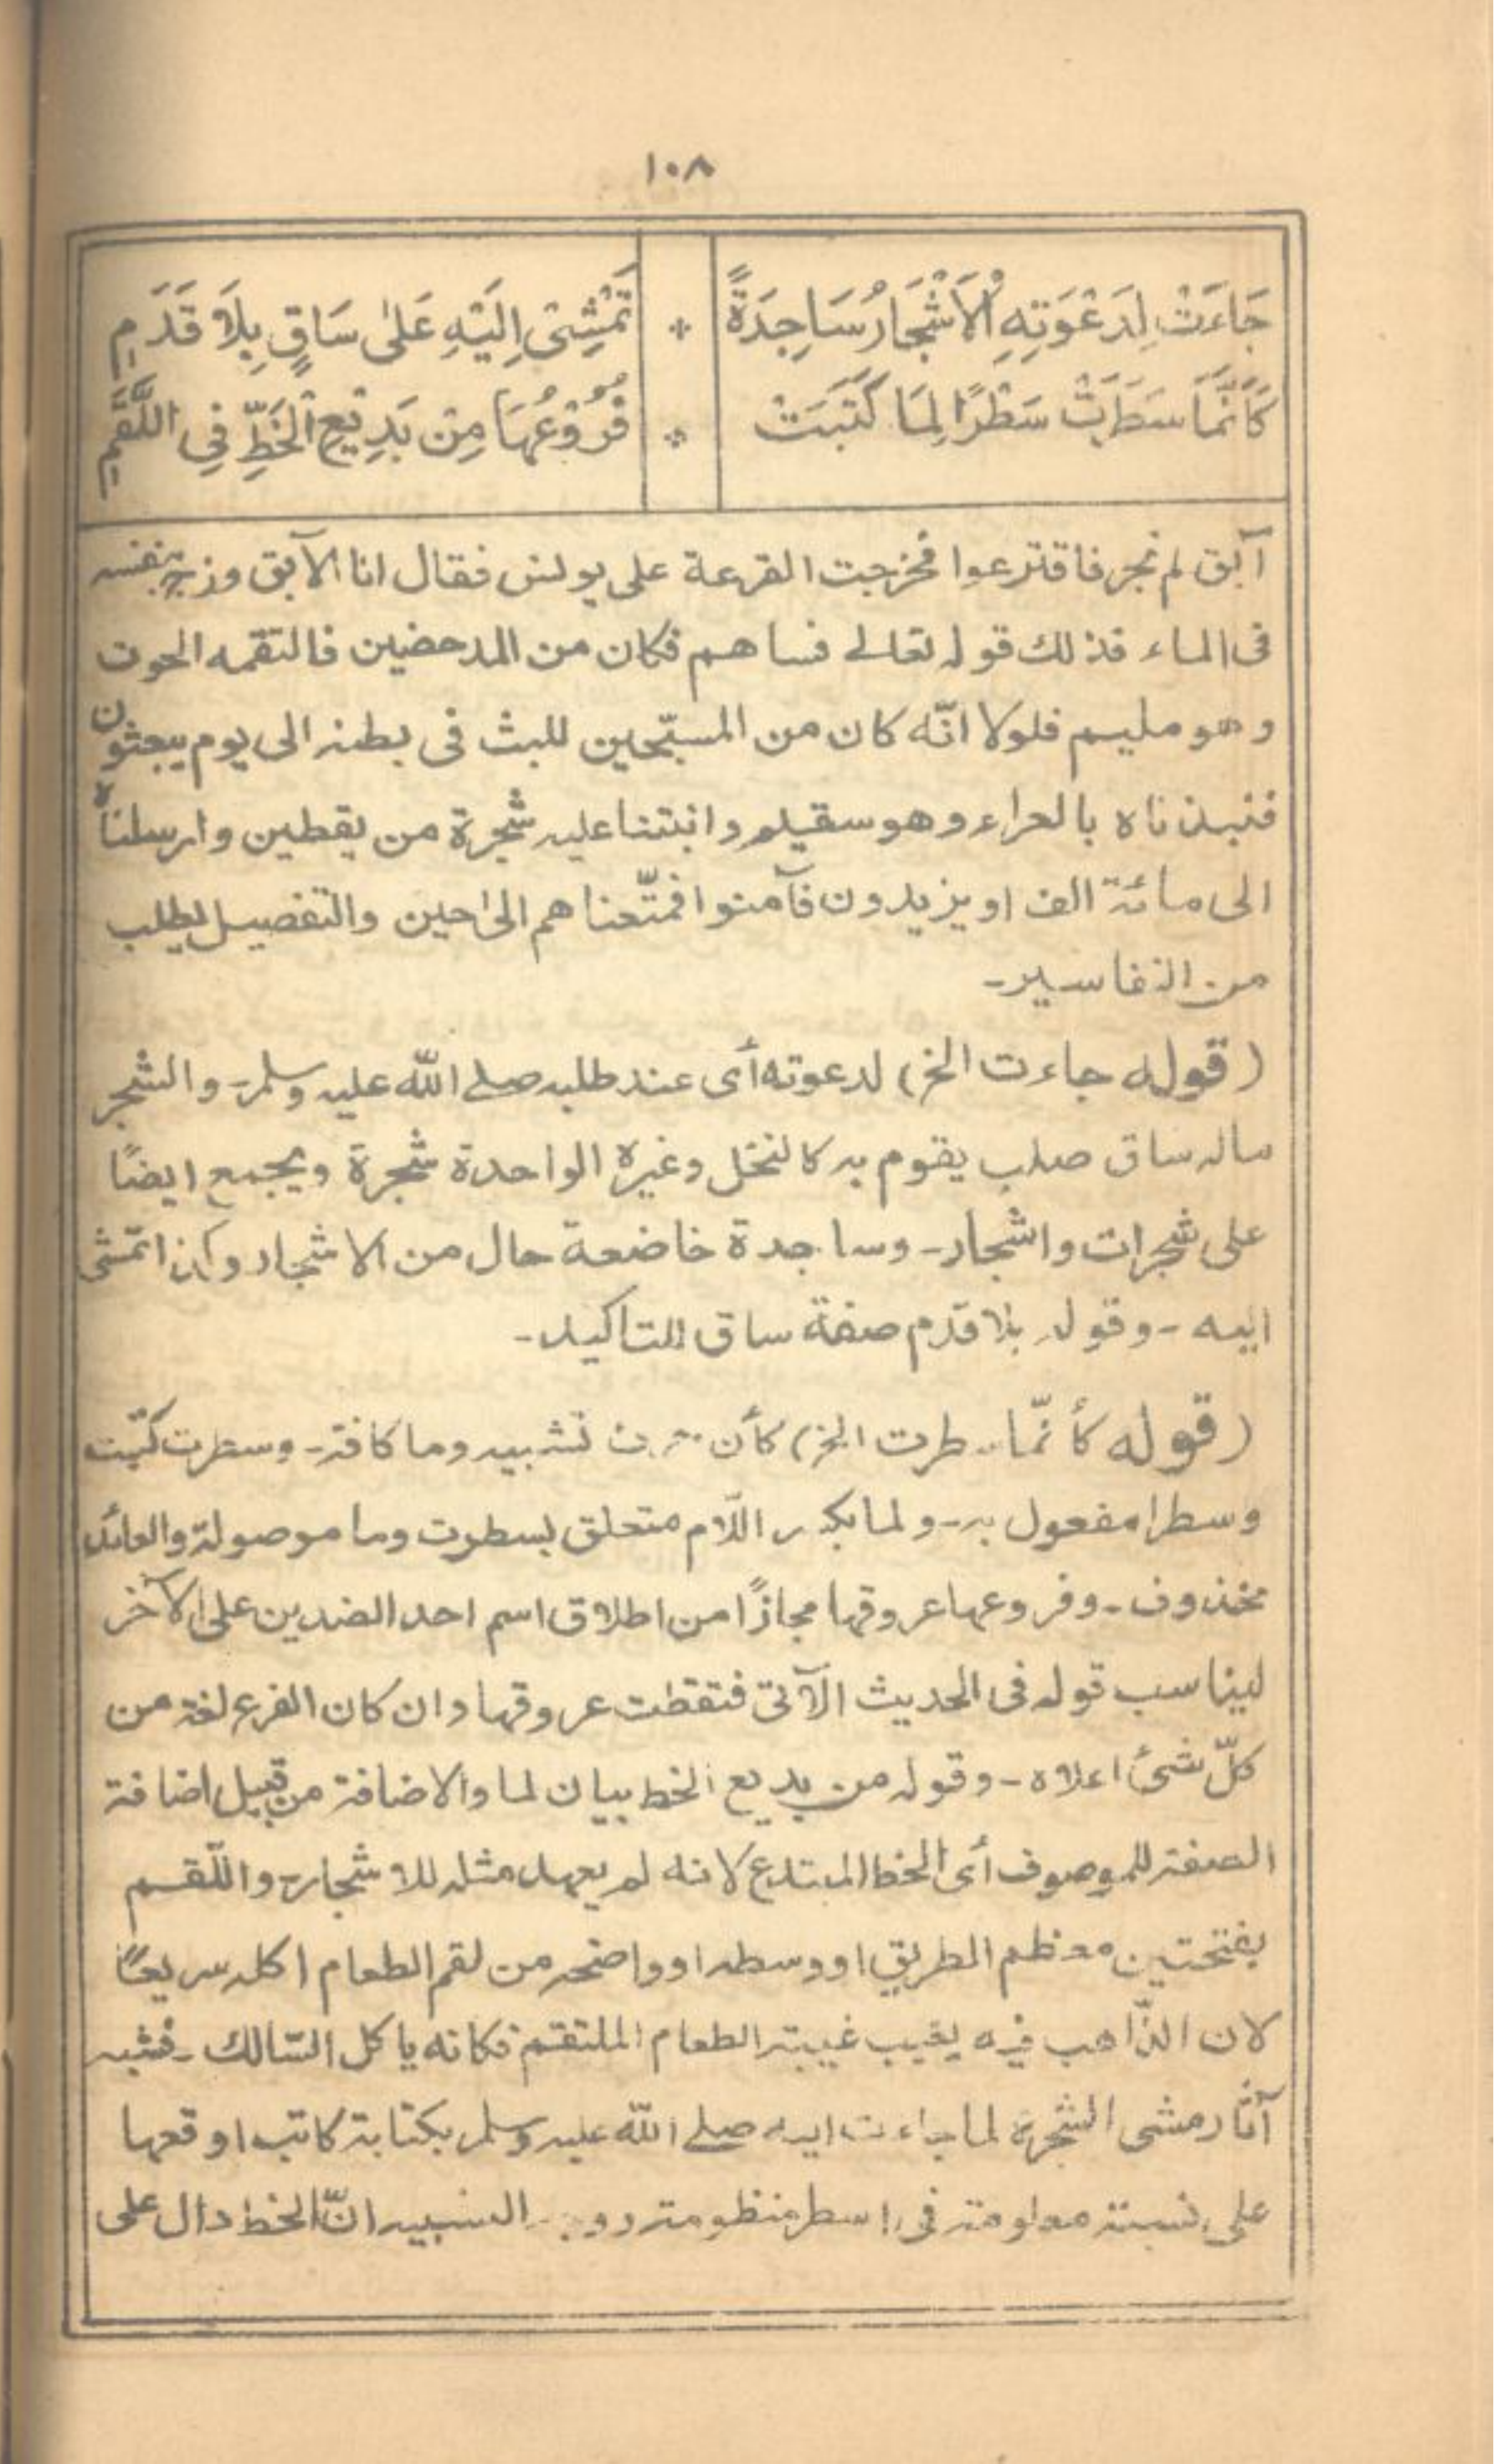 ١٠٨
جَاءَتْ لِدَعْوَتِهِ الْاَشْجَارُ سَاجِدَةً * تَمْشِىْ اِلَيْهِ عَلٰى سَاقٍ بِلَا قَدَمِ
كَاَنَّمَا سَطَرَتْ سَطْرًا لِمَا كَتَبَتْ * فُرُوْعُهَا مِنْ بَدِيْعِ الْخَطِّ فِى اللَّقَمِ
آبق لم تجر فاقترعوا فخرجت القرعة على يونس فقال انا الآبق وزج بنفسه
فى الماء فذلك قوله تعالے فساهم فكان من المدحضين فالتقمه الحوت
وهو مليم فلولا انّه كان من المسبّحين للبث فى بطنه الى يوم يبعثون
فنبذناه بالعراء وهو سقيم وانبتنا عليه شجرة من يقطين وارسلناه
الى مائة الف او يزيدون فآمنوا فمتّعناهم الىٰ حين والتفصيل يطلب
من التفاسير۔
(قوله جاءت الخ) لدعوته أى عند طلبه صلے اللّٰه عليه وسلم۔ والشجر
ماله ساق صلب يقوم به كالنخل وغيره الواحدة شجرة ويجمع ايضًا
على شجرات واشجار۔ وساجدة خاضعة حال من الاشجار وكذا تمشى
اليه۔ وقوله بلا قدم صفة ساق للتاكيد۔
(قوله كأنّما سطرت الخ) كأن حرف تشبيه وما كافة۔ وسطرت كتبت
وسطرا مفعول به۔ ولما بكسر اللّام متعلق بسطرت وما موصولة والعائد
محذوف۔ وفروعها عروقها مجازًا من اطلاق اسم احد الضدين على الآخر
ليناسب قوله فى الحديث الآتى فتقطت عروقها وان كان الفرع لغة من
كلّ شئ اعلاه۔ وقوله من بديع الخط بيان لما والاضافة من قبيل اضافة
الصفة للموصوف أى الخط المبتدع لانه لم يعهد مثله للاشجار۔ واللّقم
بفتحتين معظم الطريق او وسطه او واضحه من لقم الطعام اكله سريعًا
لان الذّاهب فيه يغيب غيبة الطعام الملتقم فكانه ياكل السّالك۔ فشبه
آثار مشى الشجرة لما جاءت اليه صلے اللّٰه عليه وسلم بكتابة كاتب اوقعها
على نسبة معلومة فى اسطر منظومة التشبيه انّ الخط دال على